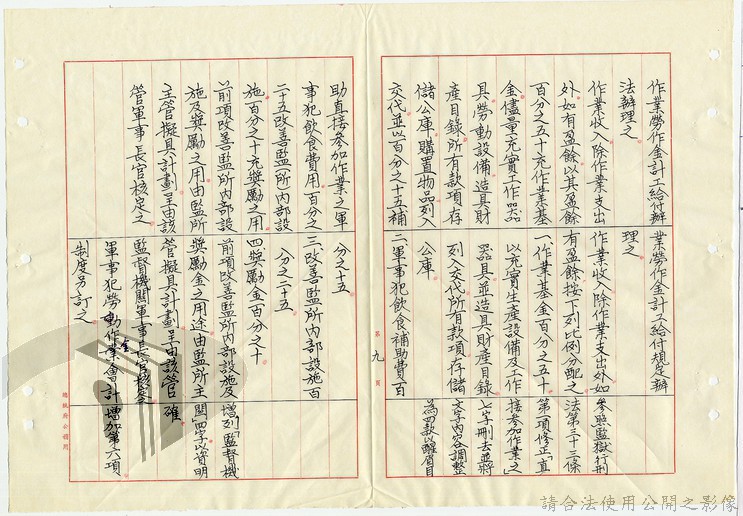 作業勞作金計工給付辦
法辦理之
作業收入除作業支出
外如有盈餘以其盈餘
百分之五十充作業基
金儘量充實工作器
具勞動設備造具財
產目錄所有款項存
儲公庫購置物品列入
交代並以百分之十五補
助直接參加作業之軍
事犯飲食費用百分之
二十五改善監所內部設
施百分之十充獎勵之用
前項改善監所內部設
施及獎勵之用由監所
主管擬具計劃呈由該
管軍事長官核定之
業勞作金計工給付規定辦
理之
作業收入除作業支出外如
有盈餘按下列比例分配之
一、作業基金百分之五十
以充實生產設備及工作
器具並造具財產目錄
列入交代所有款項存儲
公庫
二、軍事犯飲食補助費百
分之十五
三、改善監所內部設施百
分之二十五
四、獎勵金百分之十
前項改善監所內部設施及
獎勵金之用途由監所主
管擬具計劃呈由該管
監督機關軍事長官核定之
軍事犯勞動作業會計
制度另訂之
參照監獄行刑
法第三十三條
第一項修正「直
接參加作業之」
七字刪去並將
文字內容調整
為四款以醒眉目
增列「監督機
關」四字以資明
確
增加第六項
第九頁
總統府公緘用
請合法使用公開之影像